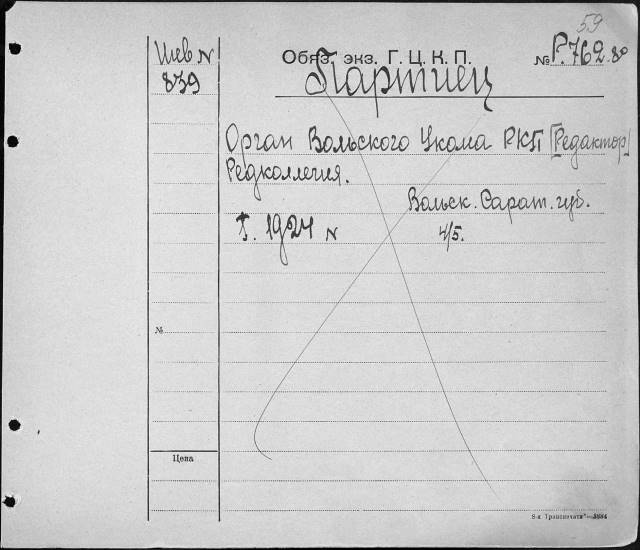 59
Шев N
839
Обяз. экз. Г. Ц. К. П.
№ Р.762.80
Партиец
Орган Вольского Укома РКП [Редактор]
Редколлегия.
Вольск. Сарат. губ.
I. 1924 N 4/5.
№
Цена